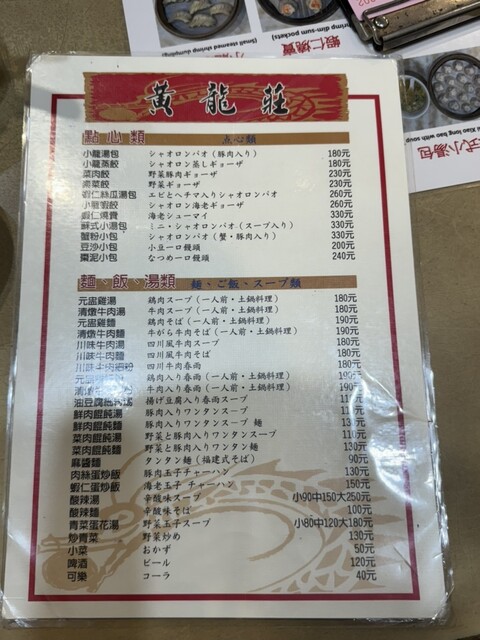 (Small steamed shrimp dumpling)
蝦仁燒賣
黃龍莊
點心類 点心類
小籠湯包 シャオロンパオ（豚肉入り） 180元
小籠蒸餃 シャオロン蒸しギョーザ 180元
菜肉餃 野菜豚肉ギョーザ 230元
素菜餃 野菜ギョーザ 230元
蝦仁絲瓜湯包 エビとヘチマ入りシャオロンパオ 260元
小籠蝦餃 シャオロン海老ギョーザ 260元
蝦仁燒賣 海老シューマイ 330元
蘇式小湯包 ミニ・シャオロンパオ（スープ入り） 330元
蟹粉小包 シャオロンパオ（蟹・豚肉入り） 330元
豆沙小包 小豆一口饅頭 200元
棗泥小包 なつめ一口饅頭 240元
麵、飯、湯類 麺、ご飯、スープ類
元盅雞湯 鶏肉スープ（一人前・土鍋料理） 180元
清燉牛肉湯 牛肉スープ（一人前・土鍋料理） 180元
元盅雞麵 鶏肉そば（一人前・土鍋料理） 190元
清燉牛肉麵 牛がら牛肉そば（一人前・土鍋料理） 190元
川味牛肉湯 四川風牛肉スープ 180元
川味牛肉麵 四川風牛肉そば 180元
川味牛肉 四川牛肉春雨 180元
元 鶏肉入り春雨（一人前・土鍋料理） 190元
清燉 牛肉入り春雨（一人前・土鍋料理） 190元
油豆腐 揚げ豆腐入り春雨スープ 110元
鮮肉餛飩湯 豚肉入りワンタンスープ 110元
鮮肉餛飩麵 豚肉入りワンタンスープ 麺 130元
菜肉餛飩湯 野菜と豚肉入りワンタンスープ 110元
菜肉餛飩麵 野菜と豚肉入りワンタン麺 130元
麻醬麵 タンタン麺（福建式そば） 90元
肉絲蛋炒飯 豚肉玉子チャーハン 130元
蝦仁蛋炒飯 海老玉子 チャーハン 150元
酸辣湯 辛酸味スープ 小90中150大250元
酸辣麵 辛酸味そば 100元
青菜蛋花湯 野菜玉子スープ 小80中120大180元
炒青菜 野菜炒め 130元
小菜 おかず 50元
啤酒 ビール 120元
可樂 コーラ 40元